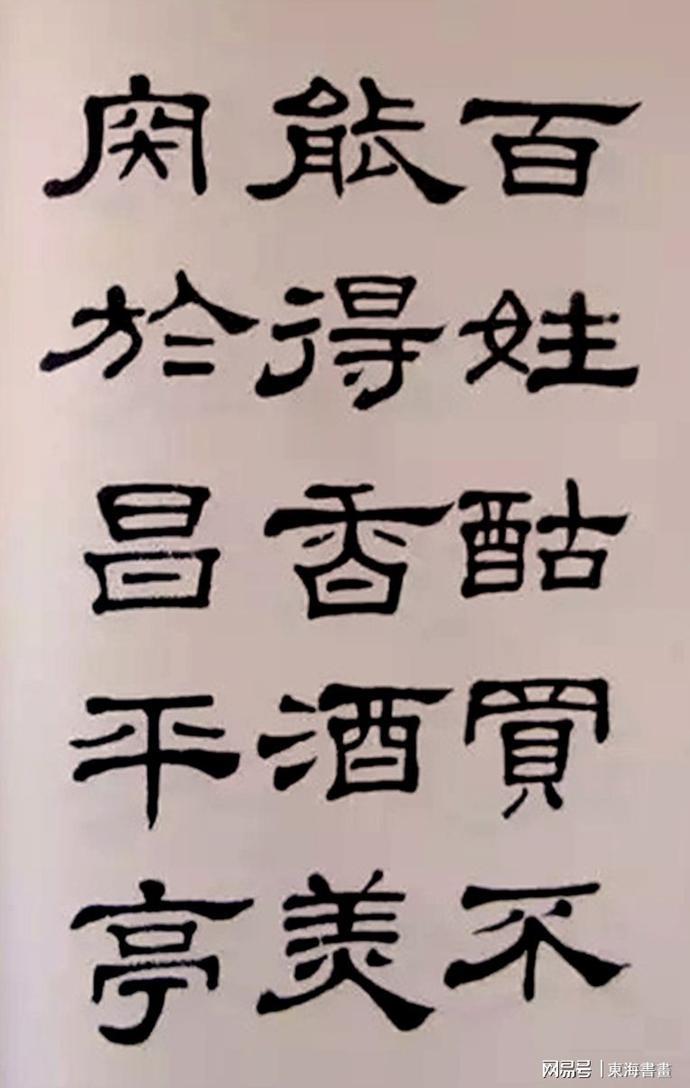 百姓酤買不
能得香酒美
肉於昌平亭
网易号 | 東海書畫